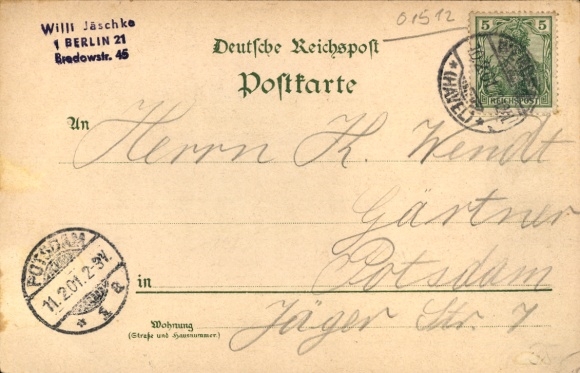 01512
Willi Jäschke
BERLIN 21
Bredowstr. 45
Deutsche Reichspost
Postkarte
5 5
REICHSPOST
(HAVEL)
An
Herrn K. Wendt
Gärtner
in Potsdam
Jäger Str. 7
Wohnung
(Straße und Hausnummer)
POTSDAM
11.2.01.2-3N.